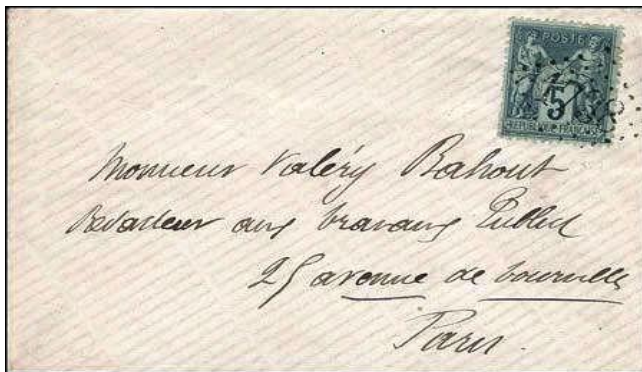 POSTE
5
REPUBLIQUE FRANCAISE
Monsieur Valéry Bahout
Rédacteur aux travaux Publics
25 avenue de tourville
Paris.